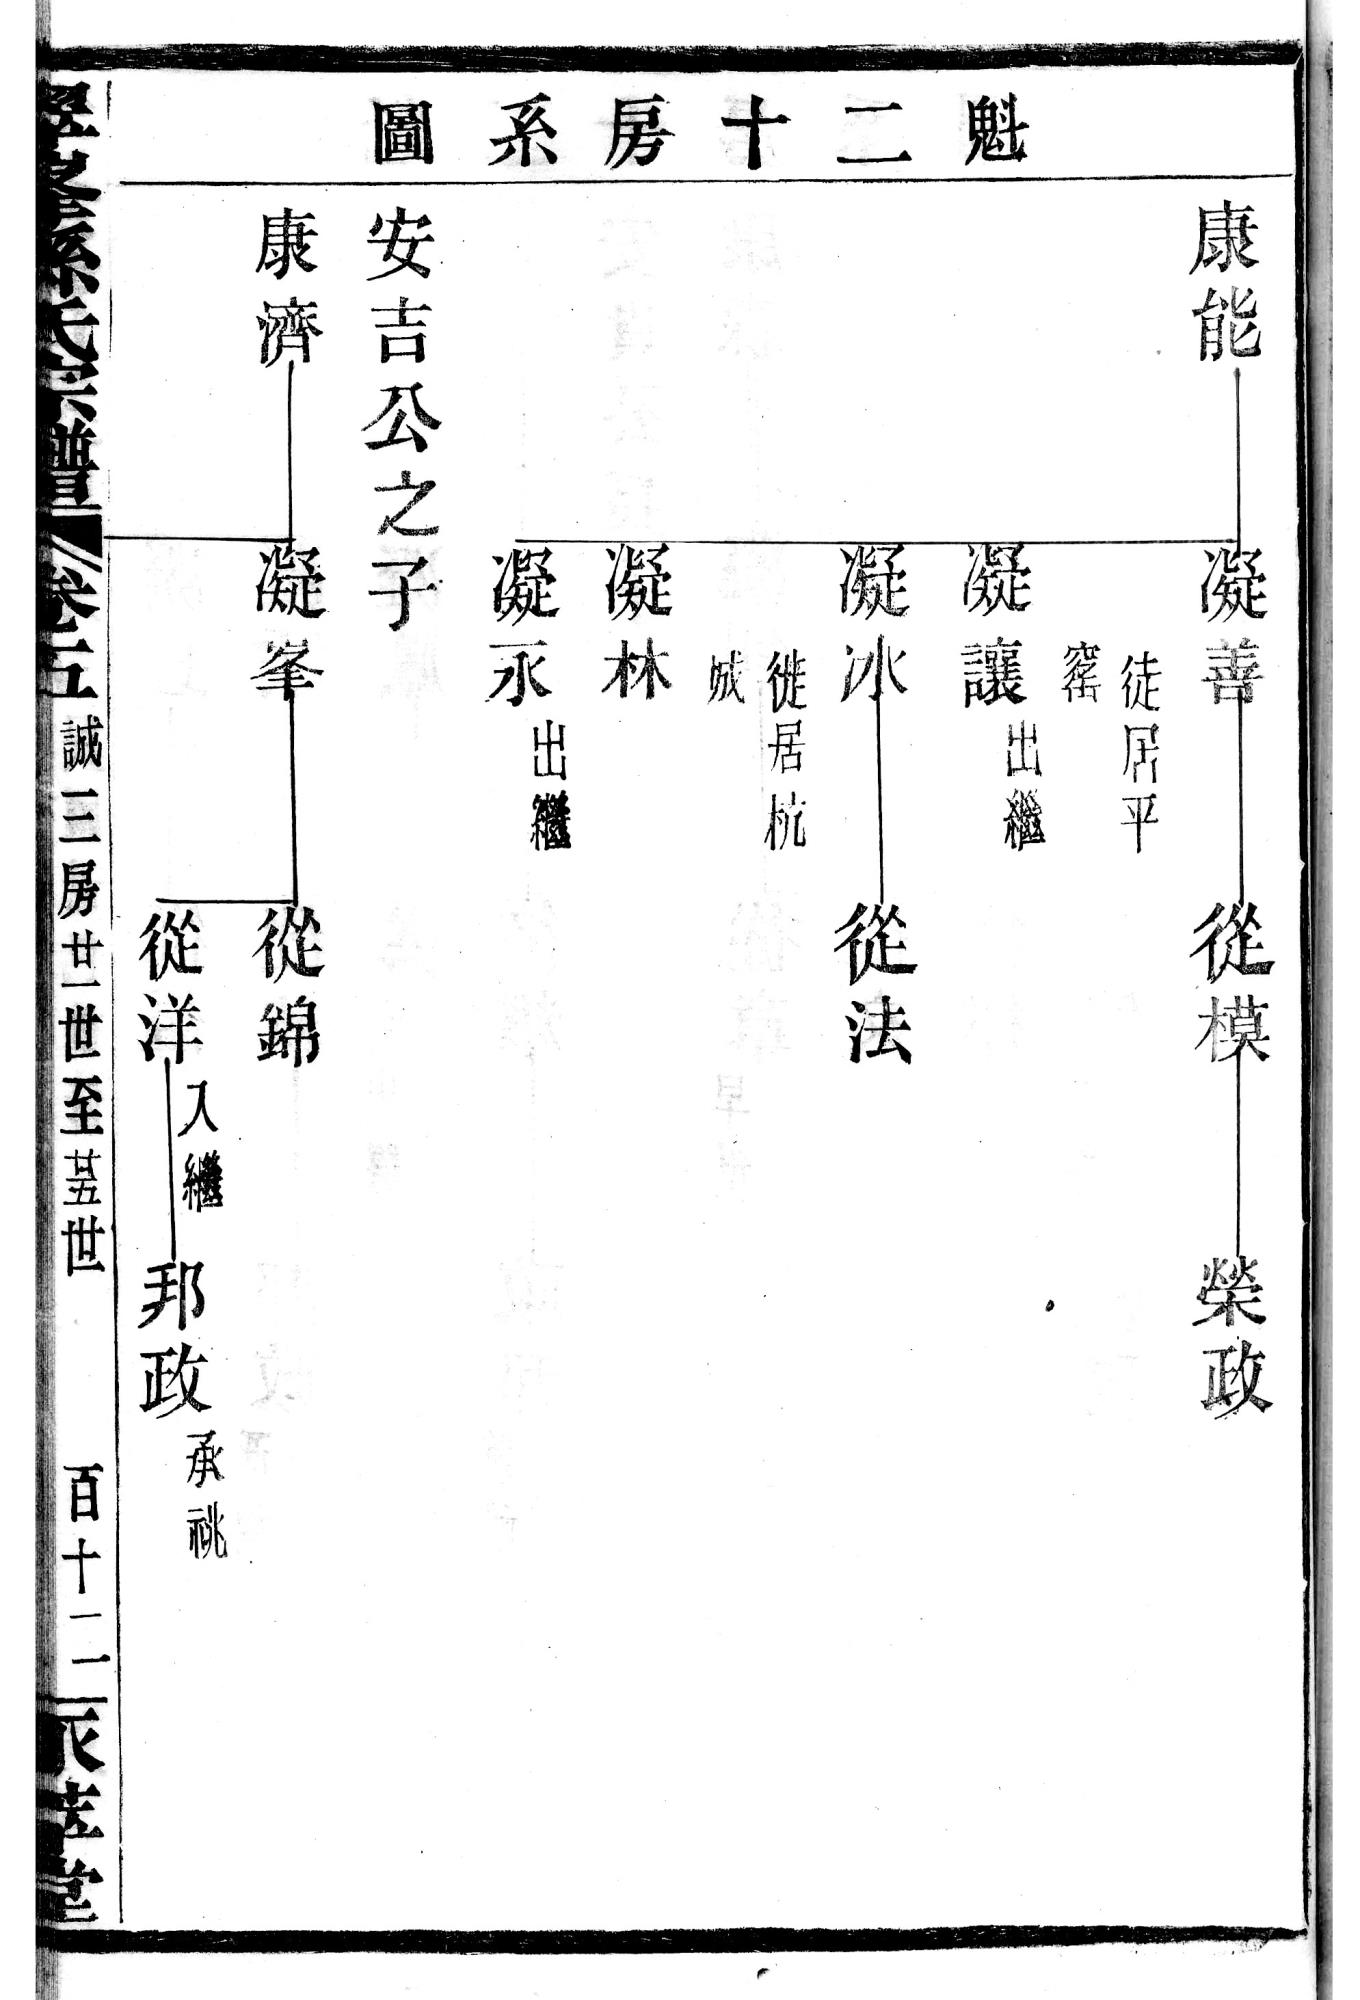 魁二十房系圖
康能
凝善
徒居平
窰
從模
榮政
凝讓
出繼
凝冰
徙居杭
城
從法
凝林
凝永
出繼
安吉公之子
康濟
凝峯
從錦
從洋
入繼
邦政
承祧
孫氏宗譜
卷五
誠三房廿一世至廿五世
百十二
堂